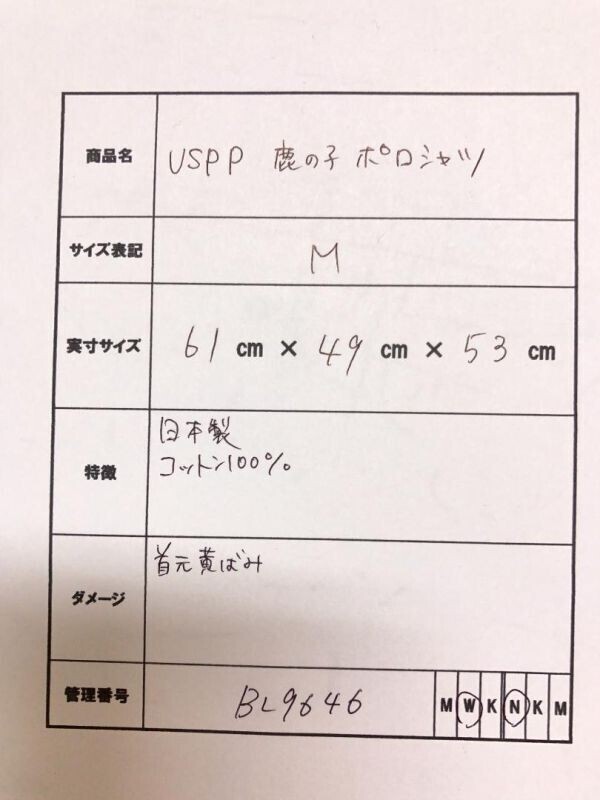 商品名 USPP 鹿の子 ポロシャツ
サイズ表記 M
実寸サイズ 61 cm × 49 cm × 53 cm
特徴 日本製
コットン100%
ダメージ 首元黄ばみ
管理番号 BL9646 M W K N K M